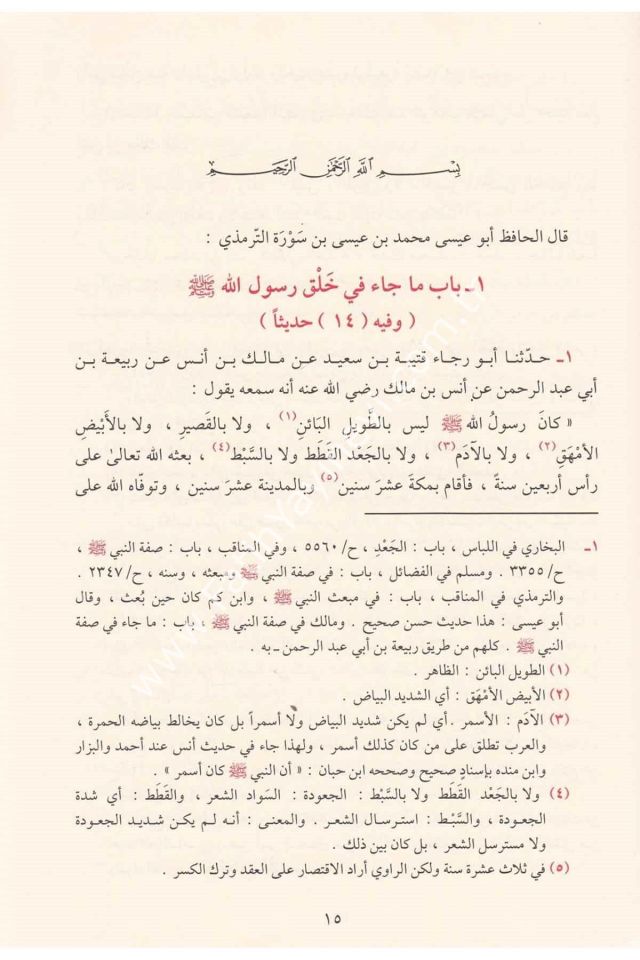 بِسْمِ اللهِ الرَّحْمٰنِ الرَّحِيْمِ
قال الحافظ أبو عيسى محمد بن عيسى بن سَوْرَة الترمذي :
١ـ باب ما جاء في خَلْق رسول الله ﷺ
( وفيه ( ١٤ ) حديثاً )
١ـ حدّثنا أبو رجاء قتيبة بن سعيد عن مالك بن أنس عن ربيعة بن
أبي عبد الرحمن عن أنس بن مالك رضي الله عنه أنه سمعه يقول :
« كانَ رسولُ الله ﷺ ليس بالطَّويلِ البَائنِ(١) ، ولا بالقَصيرِ ، ولا بالأَبْيَضِ
الأمْهَقِ(٢) ، ولا بالآدَم(٣) ، ولا بالجَعْد القَطَط ولا بالسَّبْط(٤) ، بعثه الله تعالىٰ على
رأس أربعين سنةً ، فأقام بمكةَ عشرَ سنين(٥) وبالمدينة عشرَ سنين ، وتوفّاه الله على
١ـ البخاري في اللباس ، باب : الجَعْدِ ، ح/ ٥٥٦٠ ، وفي المناقب ، باب : صفة النبي ﷺ ،
ح/ ٣٣٥٥ . ومسلم في الفضائل ، باب : في صفة النبي ﷺ ومبعثه ، وسنه ، ح/ ٢٣٤٧ .
والترمذي في المناقب ، باب : في مبعث النبي ﷺ ، وابن كم كان حين بُعث ، وقال
أبو عيسى : هذا حديث حسن صحيح . ومالك في صفة النبي ﷺ ، باب : ما جاء في صفة
النبي ﷺ . كلهم من طريق ربيعة بن أبي عبد الرحمن ـ به .
(١) الطويل البائن : الظاهر .
(٢) الأبيض الأمْهَق : أي الشديد البياض .
(٣) الآدَم : الأسمر . أي لم يكن شديد البياض ولا أسمراً بل كان يخالط بياضه الحمرة ،
والعرب تطلق على من كان كذلك أسمر ، ولهذا جاء في حديث أنس عند أحمد والبزار
وابن منده بإسنادٍ صحيح وصححه ابن حبان : « أن النبي ﷺ كان أسمر » .
(٤) ولا بالجَعْد القَطَط ولا بالسَّبْط : الجعودة : السواد الشعر ، والقَطَط : أي شدة
الجعودة ، والسَّبْط : استرسال الشعر . والمعنى : أنه لم يكن شديد الجعودة
ولا مسترسل الشعر ، بل كان بين ذلك .
(٥) في ثلاث عشرة سنة ولكن الراوي أراد الاقتصار على العقد وترك الكسر .
١٥